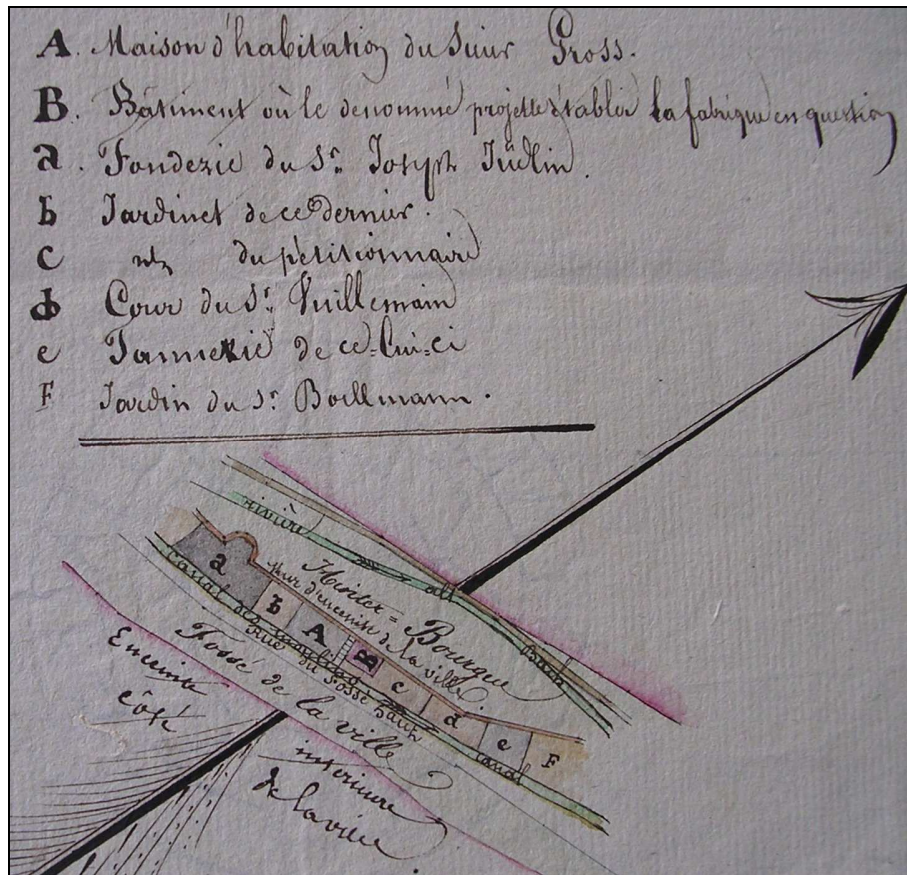 A. Maison d'habitation du Sieur Gross.
B. Bâtiment où le denommé projette établir la fabrique en question
a. Fonderie du Sr. Joseph
b Jardinet de ce dernier.
c du pétitionnaire
d Cour du Sr. Vuillemain
e Tannerie de ce=lui=ci
F Jardin du Sr. Boillmann.
rivière
alt
Bach
Hinter=Bourque
mur d'enceinte de la ville
a
b
A
B
c
d
e
F
canal des moulins
canal
rue du Fossé haut
Fossé de la ville
Enceinte
côté
intérieure
de la ville